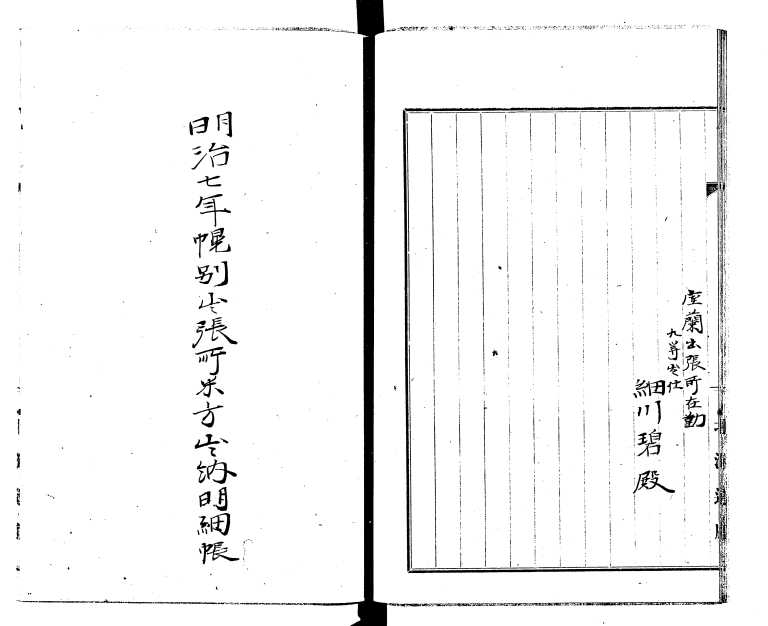 室蘭出張所在勤
九等出仕
細川碧殿
明治七年幌別出張所米方出納明細帳